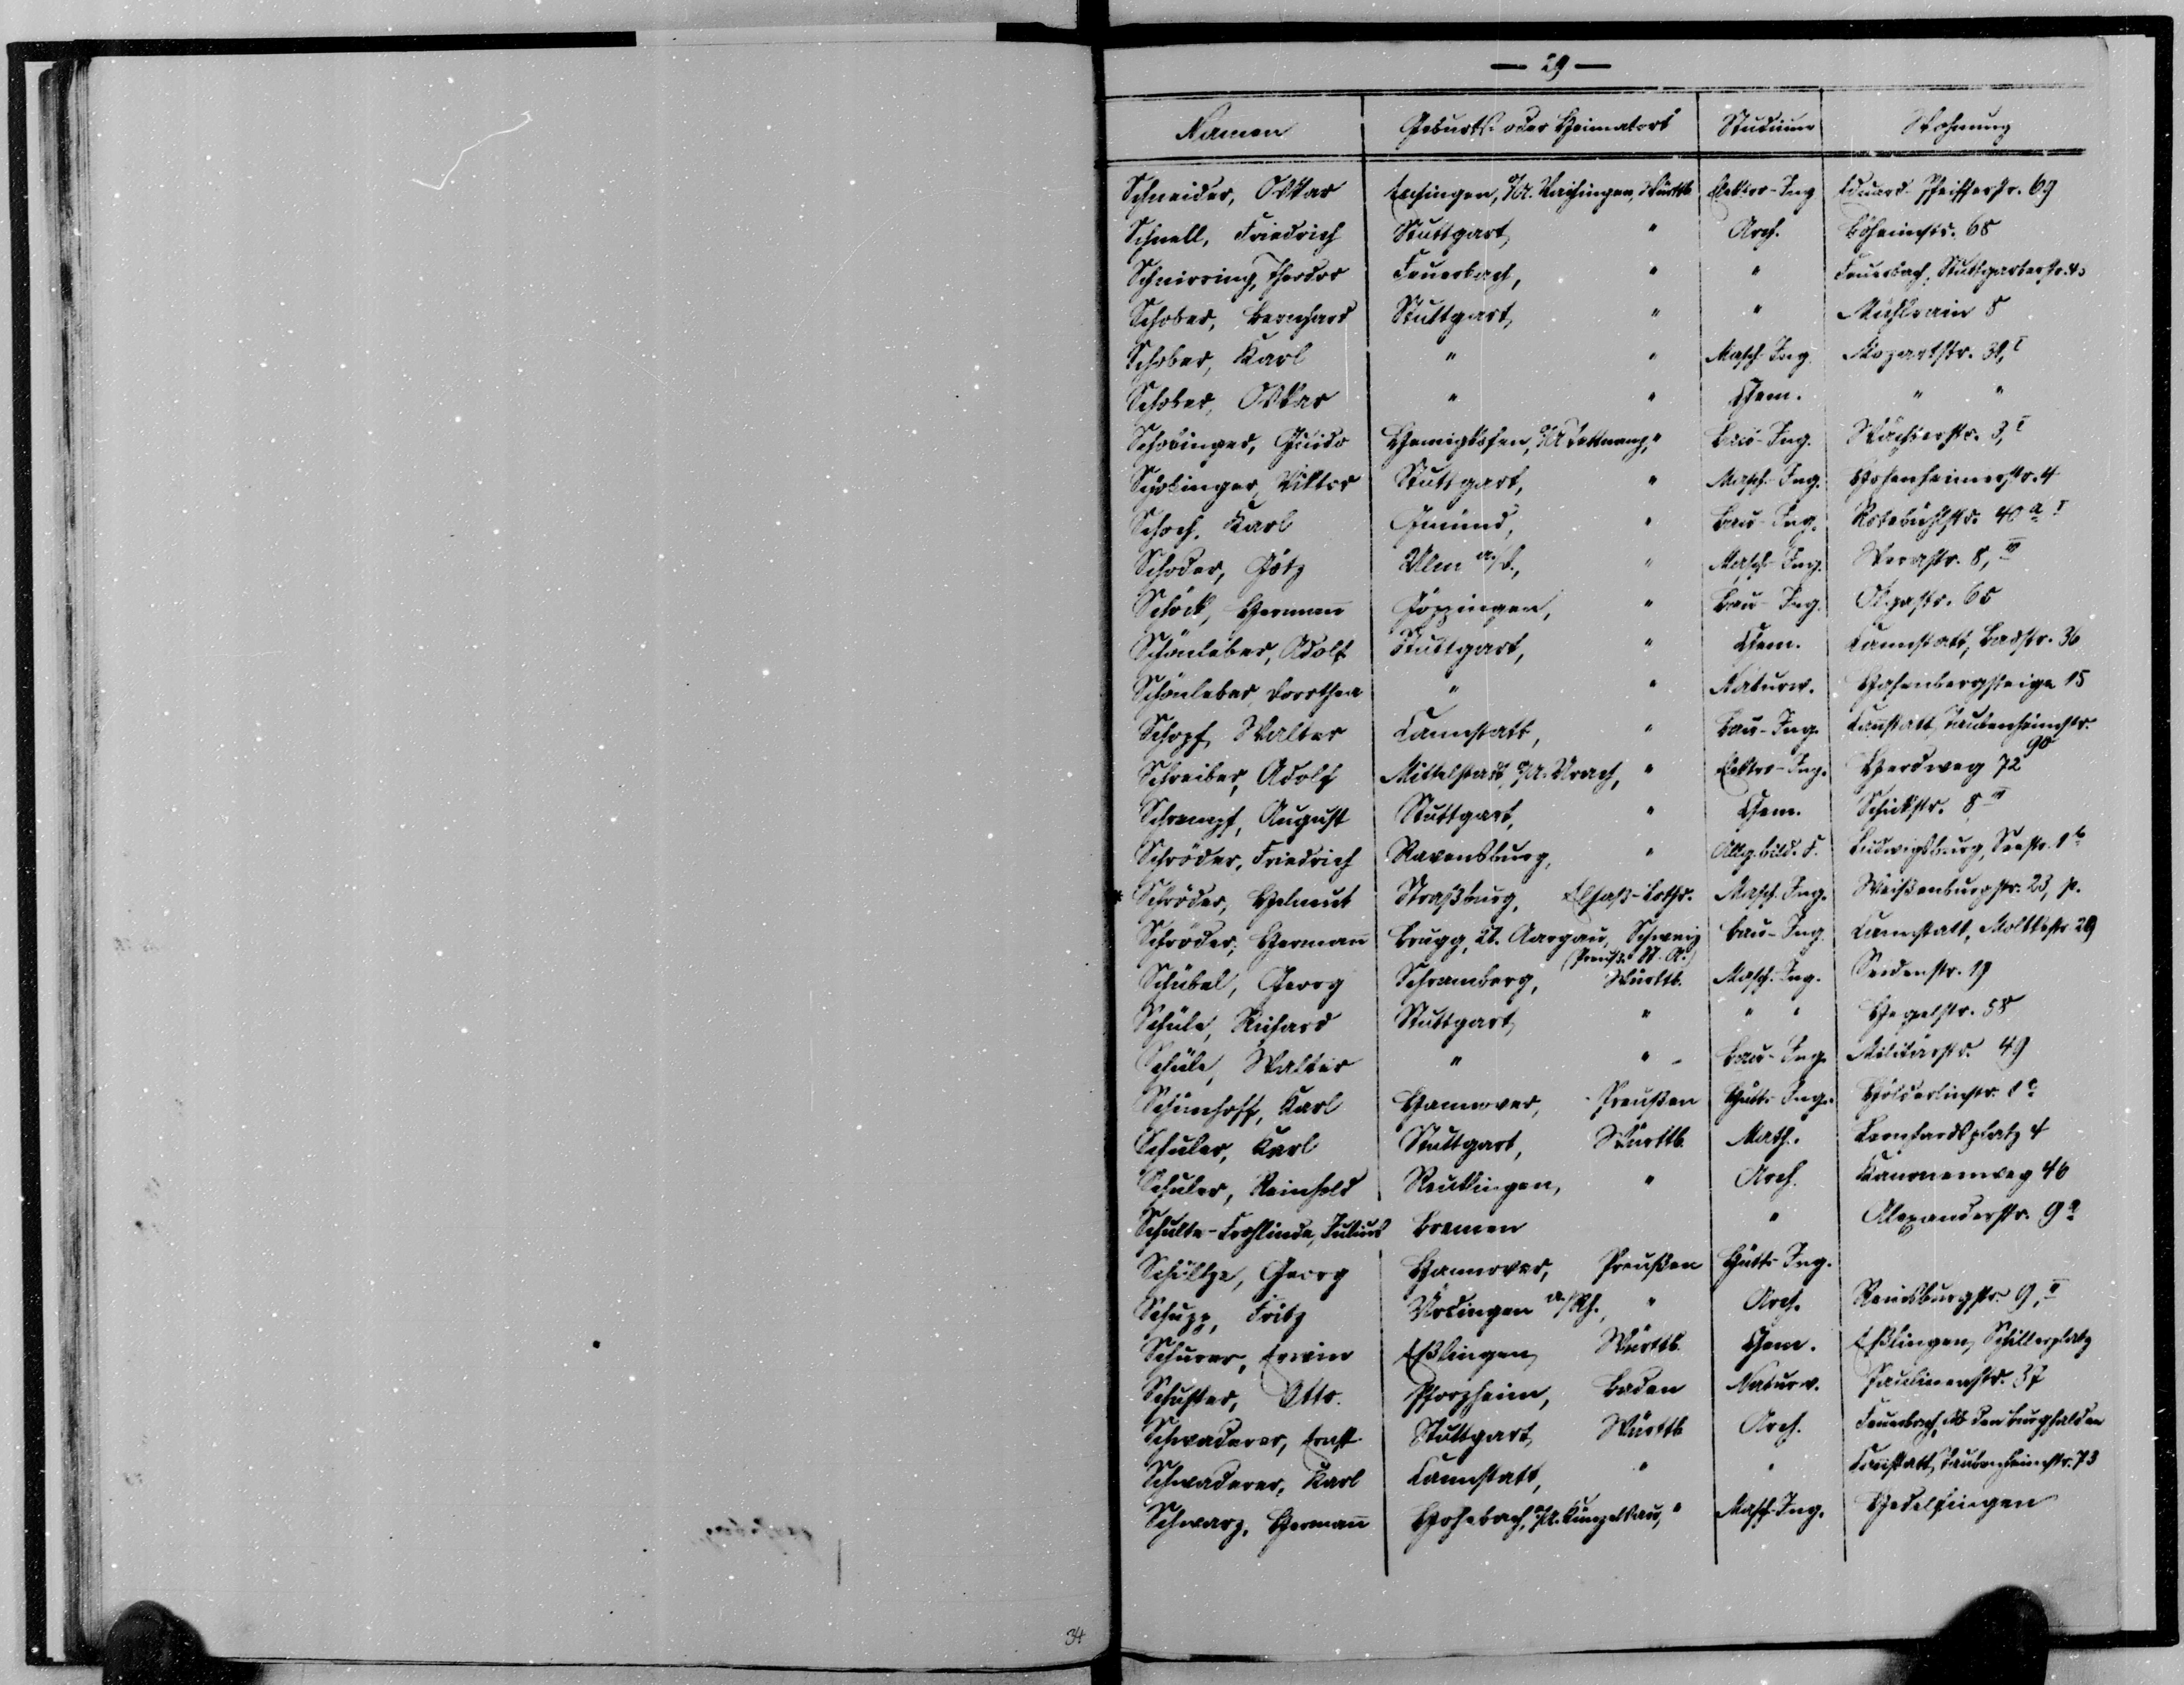 — 29 —
Namen Geburts- oder Heimatort Studium Wohnung
Schneider, Oskar Enzingen, O/A. Vaihingen, Württb. Elektro-Ing. Eduard Pfeifferstr. 69
Schnell, Friedrich Stuttgart, " Arch. Böheimstr. 68
Schnirring, Theodor Feuerbach, " " Feuerbach, Stuttgarterstr.
Schober, Bernhard Stuttgart, " " Mühlrain 8
Schober, Karl " " Masch.-Ing. Mozartstr. 31, I
Schober, Oskar " " Chem. " "
Schobinger, Guido Hemigkofen, O/A Tettnang, " Bau-Ing. Wächterstr. 3, I
Schobinger, Viktor Stuttgart, " Masch.-Ing. Hohenheimerstr. 4
Schoch, Karl Gmünd, " Bau-Ing. Rotebühlstr. 40 a I
Schoder, Götz Ulm a/D., " Masch.-Ing. Werastr. 8, IV
Schöck, Hermann Göppingen, " Bau-Ing. Olgastr. 65
Schönleber, Adolf Stuttgart, " Chem. Cannstatt, Badstr. 36
Schönleber, Dorothea " " Naturw. Hasenbergsteige 15
Schopf, Walter Cannstatt, " Bau-Ing. Cannstatt, Taubenheimstr. 90
Schreiber, Adolf Mittelstadt, O/A. Urach, " Elektro-Ing. Herdweg 72
Schrempf, August Stuttgart, " Chem. Schickstr. 8 III
Schröder, Friedrich Ravensburg, " Allg. bild. F. Ludwigsburg, Seestr. 1 b
* Schröder, Helmut Straßburg, Elsaß-Lothr. Masch.-Ing. Weißenburgstr. 23, p.
Schröder, Hermann Brugg, Kt. Aargau, Schweiz Bau-Ing. Cannstatt, Moltkestr. 29
(Preuß. St. A.)
Schübel, Georg Schramberg, Württb. Masch.-Ing. Seidenstr. 19
Schüle, Richard Stuttgart, " " " Hegelstr. 58
Schüle, Walter " " Bau-Ing. Militärstr. 49
Schünhoff, Karl Hannover, Preußen Hütt.-Ing. Hölderlinstr. 1 c
Schuler, Karl Stuttgart, Württb. Math. Leonhardsplatz 4
Schuler, Reinhold Reutlingen, " Arch. Kanonenweg 46
Schulte-Frohlinde, Julius Bremen " Alexanderstr. 9 a
Schultze, Georg Hannover, Preußen Hütt.-Ing.
Schupp, Fritz Ürdingen a/Rh., " Arch. Reinsburgstr. 9, II
Schurer, Erwin Eßlingen, Württb. Chem. Eßlingen, Schillerplatz
Schuster, Otto. Pforzheim, Baden Naturw. Paulinenstr. 37
Schwaderer, Ernst Stuttgart, Württb. Arch. Feuerbach, den Burghalden
Schwaderer, Karl Cannstatt, " " Cannstatt, Taubenheimstr. 73
Schwarz, Hermann Hohebach, O/A. Künzelsau, " Masch.-Ing. Hedelfingen
34